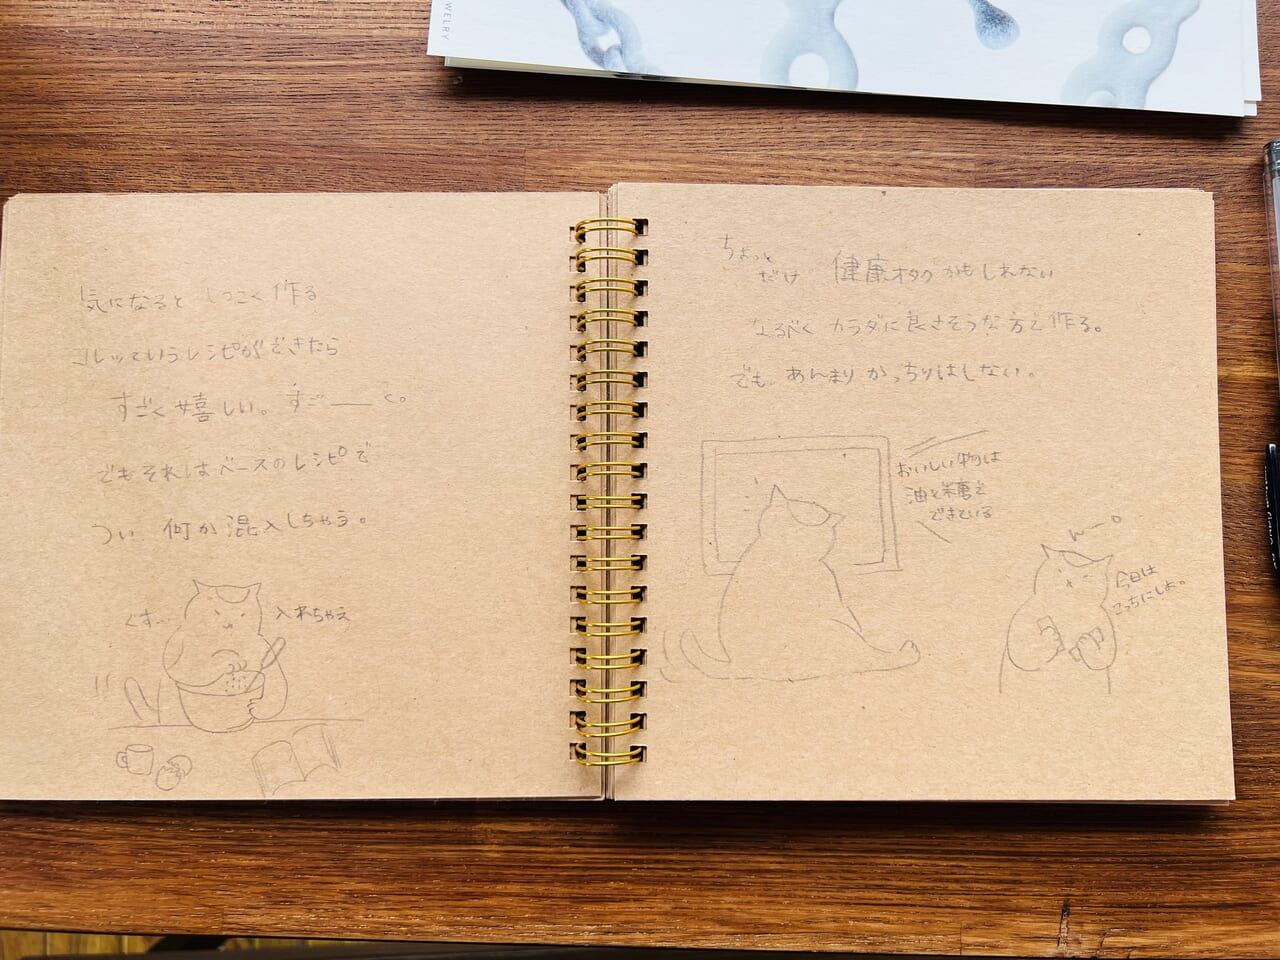 WELRY
気になると しつこく 作る
コレッていうレシピができたら
すごく嬉しい。すご――く。
でもそれはベースのレシピで
つい 何か混入しちゃう。
くす…
入れちゃえ
ちょっと
だけ 健康オタクかもしれない
なるべく カラダに良さそうな方を作る。
でも あんまり かっちりはしない。
おいしい物は
油と糖で
できている
んー。
今日は
こっちにしよ。